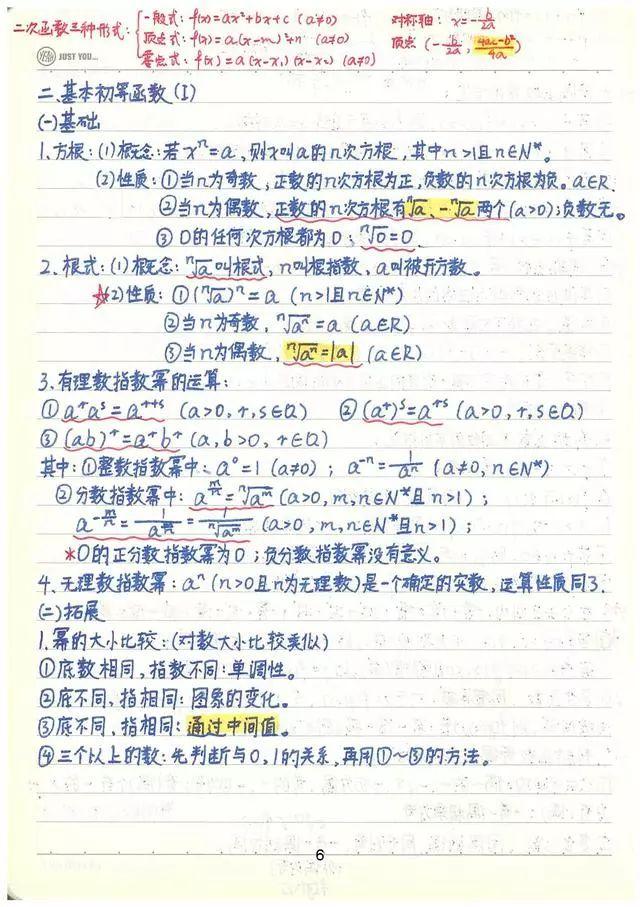 二次函数三种形式:
一般式: f(x)=ax²+bx+c (a≠0)
顶点式: f(x)=a(x-m)²+n (a≠0)
零点式: f(x)=a(x-x₁)(x-x₂) (a≠0)
对称轴: x=-b/2a
顶点 (-b/2a, (4ac-b²)/4a)
JUST YOU...
二.基本初等函数(I)
(一)基础
1.方根:(1)概念:若xⁿ=a,则x叫a的n次方根,其中n>1且n∈N*。
(2)性质:①当n为奇数,正数的n次方根为正,负数的n次方根为负。a∈R.
②当n为偶数,正数的n次方根有ⁿ√a、-ⁿ√a两个(a>0);负数无。
③ 0的任何次方根都为0;ⁿ√0=0.
2.根式:(1)概念:ⁿ√a叫根式,n叫根指数,a叫被开方数。
☆(2)性质:①(ⁿ√a)ⁿ=a (n>1且n∈N*)
②当n为奇数,ⁿ√aⁿ=a (a∈R)
③当n为偶数,ⁿ√aⁿ=|a| (a∈R)
3.有理数指数幂的运算:
① aʳaˢ=aʳ⁺ˢ (a>0,r,s∈Q) ②(aʳ)ˢ=aʳˢ (a>0,r,s∈Q)
③(ab)ʳ=aʳbʳ (a,b>0,r∈Q)
其中:①整数指数幂中:a⁰=1 (a≠0); a⁻ⁿ=1/aⁿ (a≠0,n∈N*)
②分数指数幂中:a^(m/n)=ⁿ√aᵐ (a>0,m,n∈N*且n>1);
a^(-m/n)=1/a^(m/n)=1/ⁿ√aᵐ (a>0,m,n∈N*且n>1);
*0的正分数指数幂为0;负分数指数幂没有意义。
4.无理数指数幂:aⁿ(n>0且n为无理数)是一个确定的实数,运算性质同3.
(二)拓展
1.幂的大小比较:(对数大小比较类似)
①底数相同,指数不同:单调性。
②底不同,指相同:图象的变化。
③底不同,指相同:通过中间值。
④三个以上的数:先判断与0,1的关系,再用①~③的方法。
6